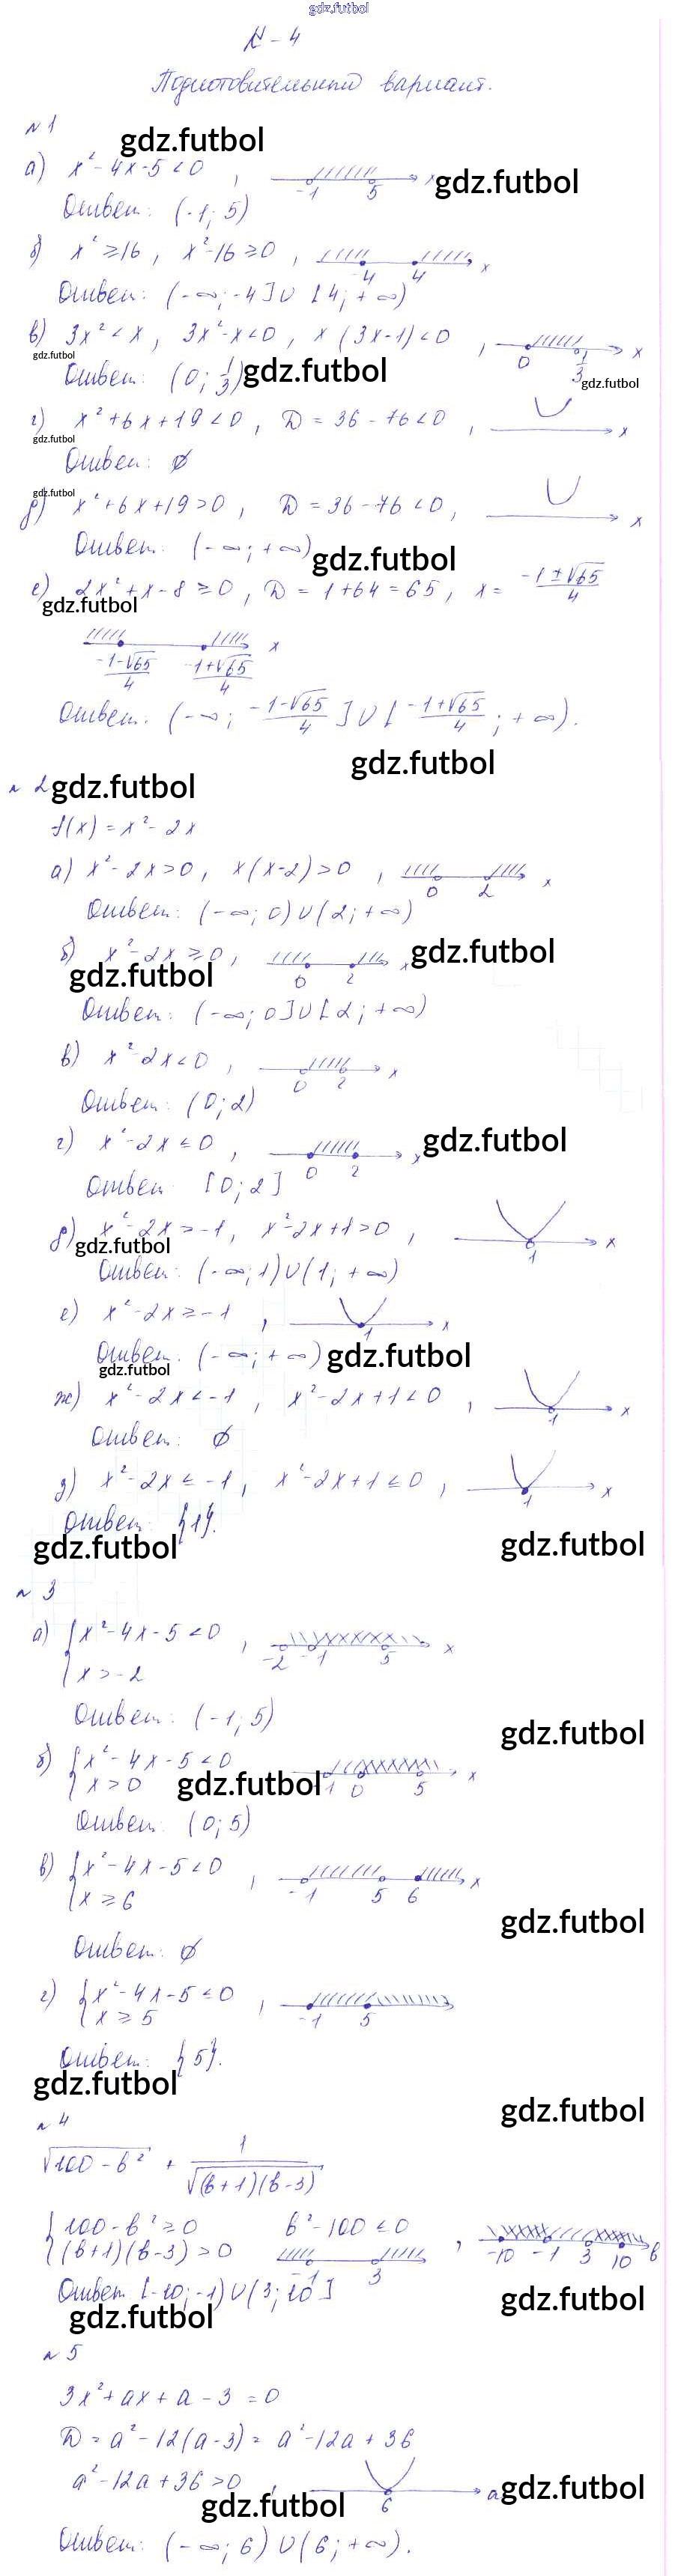 gdz.futbol
К-4
Подготовительный вариант.
№1
gdz.futbol
а) x² - 4x - 5 < 0 , -1 5 x gdz.futbol
Ответ: (-1; 5)
б) x² ≥ 16 , x² - 16 ≥ 0 , -4 4 x
Ответ: (-∞; -4] ∪ [4; +∞)
в) 3x² < x , 3x² - x < 0 , x (3x - 1) < 0 , 0 1/3 x
gdz.futbol
Ответ: (0; 1/3) gdz.futbol gdz.futbol
г) x² + 6x + 19 < 0 , D = 36 - 76 < 0 , x
gdz.futbol
Ответ: ∅
gdz.futbol
д) x² + 6x + 19 > 0 , D = 36 - 76 < 0 , x
Ответ: (-∞; +∞) gdz.futbol
е) 2x² + x - 8 ≥ 0 , D = 1 + 64 = 65 , x = (-1 ± √65)/4
gdz.futbol
(-1-√65)/4 (-1+√65)/4 x
Ответ: (-∞; (-1-√65)/4] ∪ [(-1+√65)/4; +∞).
gdz.futbol
№ 2 gdz.futbol
f(x) = x² - 2x
а) x² - 2x > 0 , x(x-2) > 0 , 0 2 x
Ответ: (-∞; 0) ∪ (2; +∞)
б) x² - 2x ≥ 0 , 0 2 x gdz.futbol
gdz.futbol
Ответ: (-∞; 0] ∪ [2; +∞)
в) x² - 2x < 0 , 0 2 x
Ответ: (0; 2)
г) x² - 2x ≤ 0 , 0 2 x gdz.futbol
Ответ [0; 2]
д) x² - 2x > -1 , x² - 2x + 1 > 0 , 1 x
gdz.futbol
Ответ: (-∞; 1) ∪ (1; +∞)
е) x² - 2x ≥ -1 , 1 x
Ответ: (-∞; +∞) gdz.futbol
gdz.futbol
ж) x² - 2x < -1 , x² - 2x + 1 < 0 , 1 x
Ответ: ∅
з) x² - 2x ≤ -1 , x² - 2x + 1 ≤ 0 , 1 x
Ответ: {1}.
gdz.futbol gdz.futbol
№ 3
а) { x² - 4x - 5 < 0 , -2 -1 5 x
x > -2
Ответ: (-1; 5)
gdz.futbol
б) { x² - 4x - 5 < 0
x > 0 gdz.futbol -1 0 5 x
Ответ: (0; 5)
в) { x² - 4x - 5 < 0 , -1 5 6 x
x ≥ 6
gdz.futbol
Ответ: ∅
г) { x² - 4x - 5 ≤ 0 , -1 5
x ≥ 5
Ответ: {5}.
gdz.futbol
gdz.futbol
№ 4
√(100 - b²) + 1/√((b+1)(b-3))
{ 100 - b² ≥ 0 b² - 100 ≤ 0 , -10 -1 3 10 b
(b+1)(b-3) > 0 -1 3
Ответ [-10; -1) ∪ (3; 10]
gdz.futbol
gdz.futbol
№ 5
3x² + ax + a - 3 = 0
D = a² - 12(a-3) = a² - 12a + 36
a² - 12a + 36 > 0 , 6 a gdz.futbol
gdz.futbol
Ответ: (-∞; 6) ∪ (6; +∞).